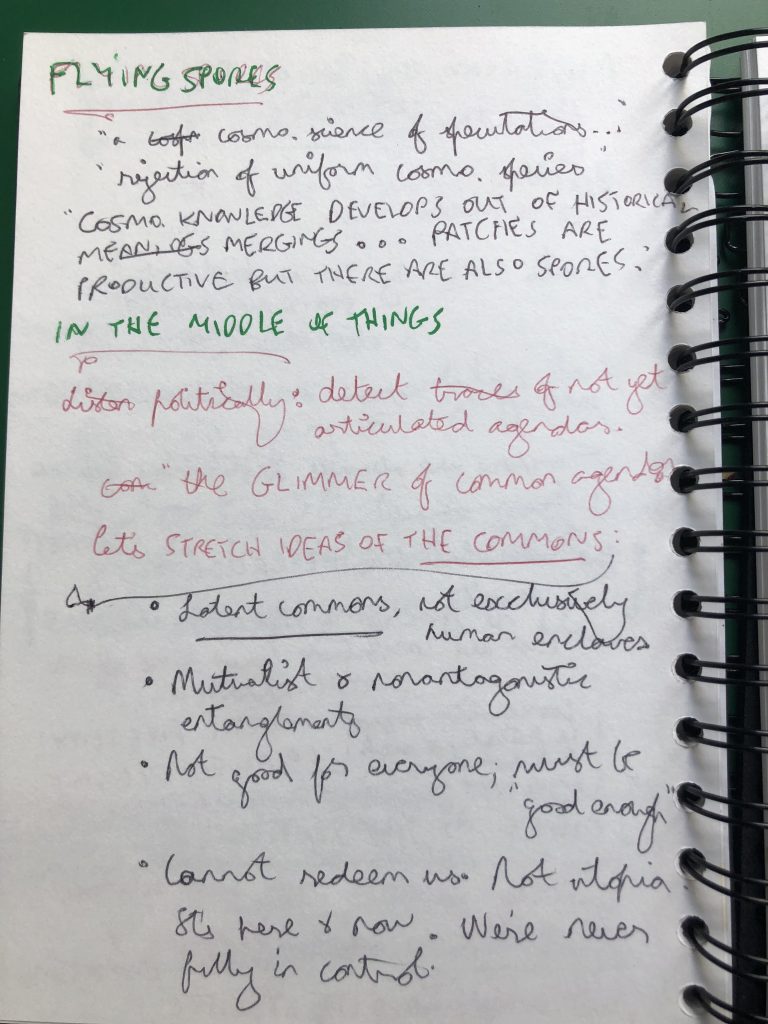 FLYING SPORES
"a cosmo. science of speculations..."
"rejection of uniform cosmo. species"
"COSMO. KNOWLEDGE DEVELOPS OUT OF HISTORICAL
MEANINGS MERGINGS ... PATCHES ARE
PRODUCTIVE BUT THERE ARE ALSO SPORES."
IN THE MIDDLE OF THINGS
listen politically: detect traces of not yet
articulated agendas.
"the GLIMMER of common agendas
let's STRETCH IDEAS OF THE COMMONS:
• Latent commons, not exclusively
human enclaves
• Mutualist & nonantagonistic
entanglements
• Not good for everyone; must be
"good enough"
• Cannot redeem us. Not utopia.
It's here & now. We're never
fully in control.